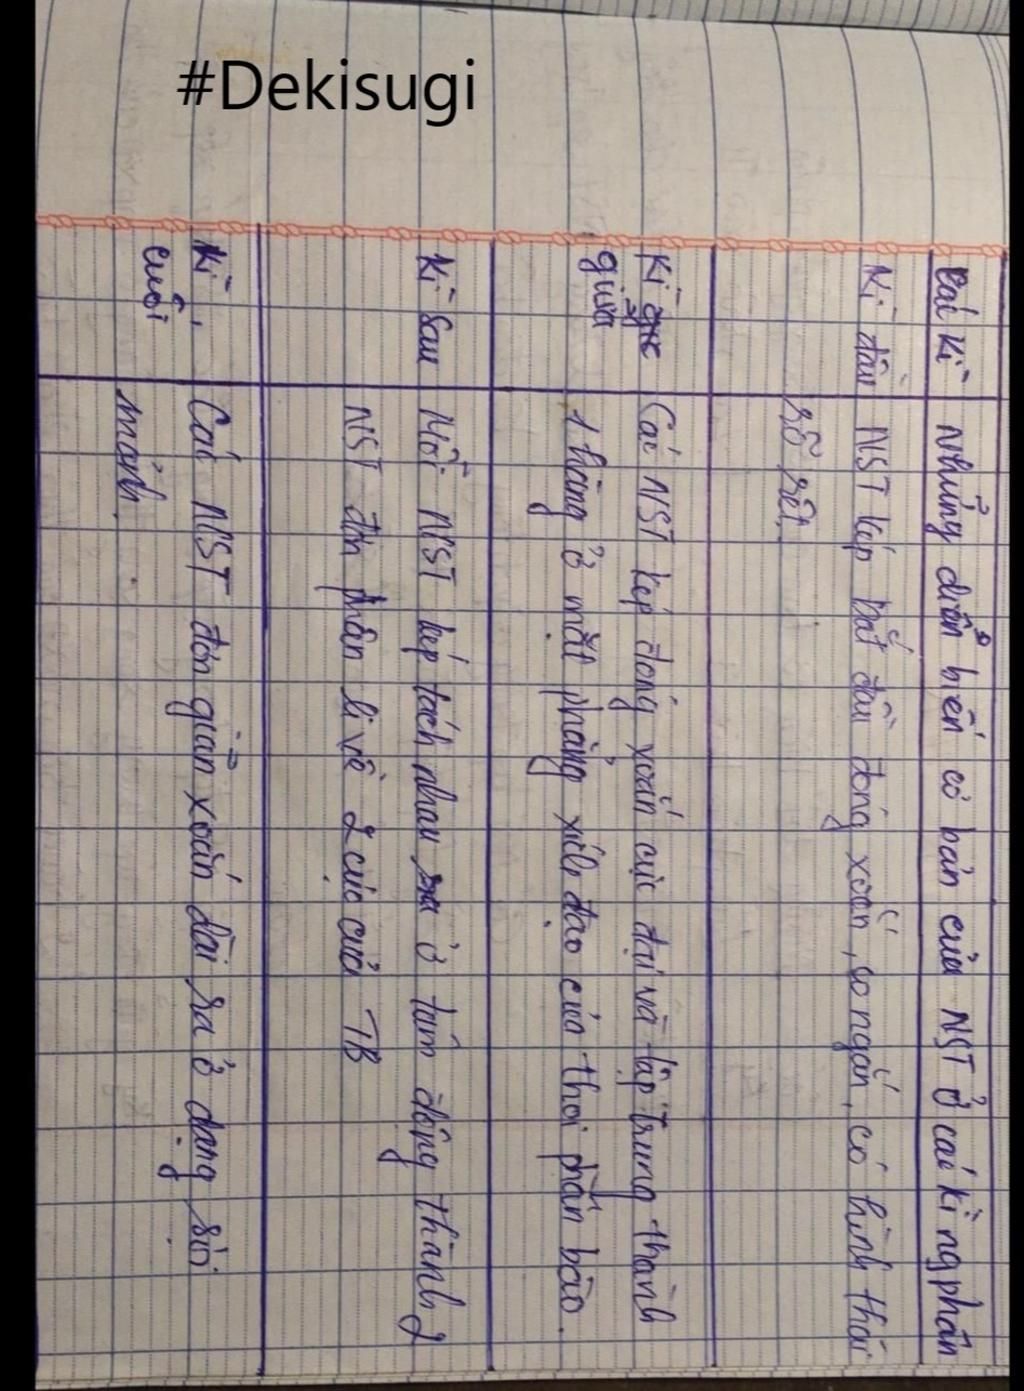 #Dekisugi
Các kì Những diễn biến cơ bản của NST ở các kì ng phân
Kì đầu NST kép bắt đầu đóng xoắn, co ngắn, có hình thái
rõ rệt.
Kì Các NST kép đóng xoắn cực đại và tập trung thành
giữa 1 hàng ở mặt phẳng xích đạo của thoi phân bào.
Kì sau Mỗi NST kép tách nhau ở tâm động thành 2
NST đơn phân li về 2 cực của TB
Kì Các NST đơn giãn xoắn dài ra ở dạng sợi
cuối mảnh.